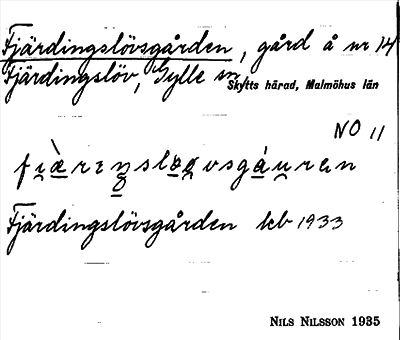 Fjärdingslövsgården, gård å nr 14
Fjärdingslöv, Gylle sn
Skytts härad, Malmöhus län
NO 11
Fjärdingslövsgården leb 1933
NILS NILSSON 1935